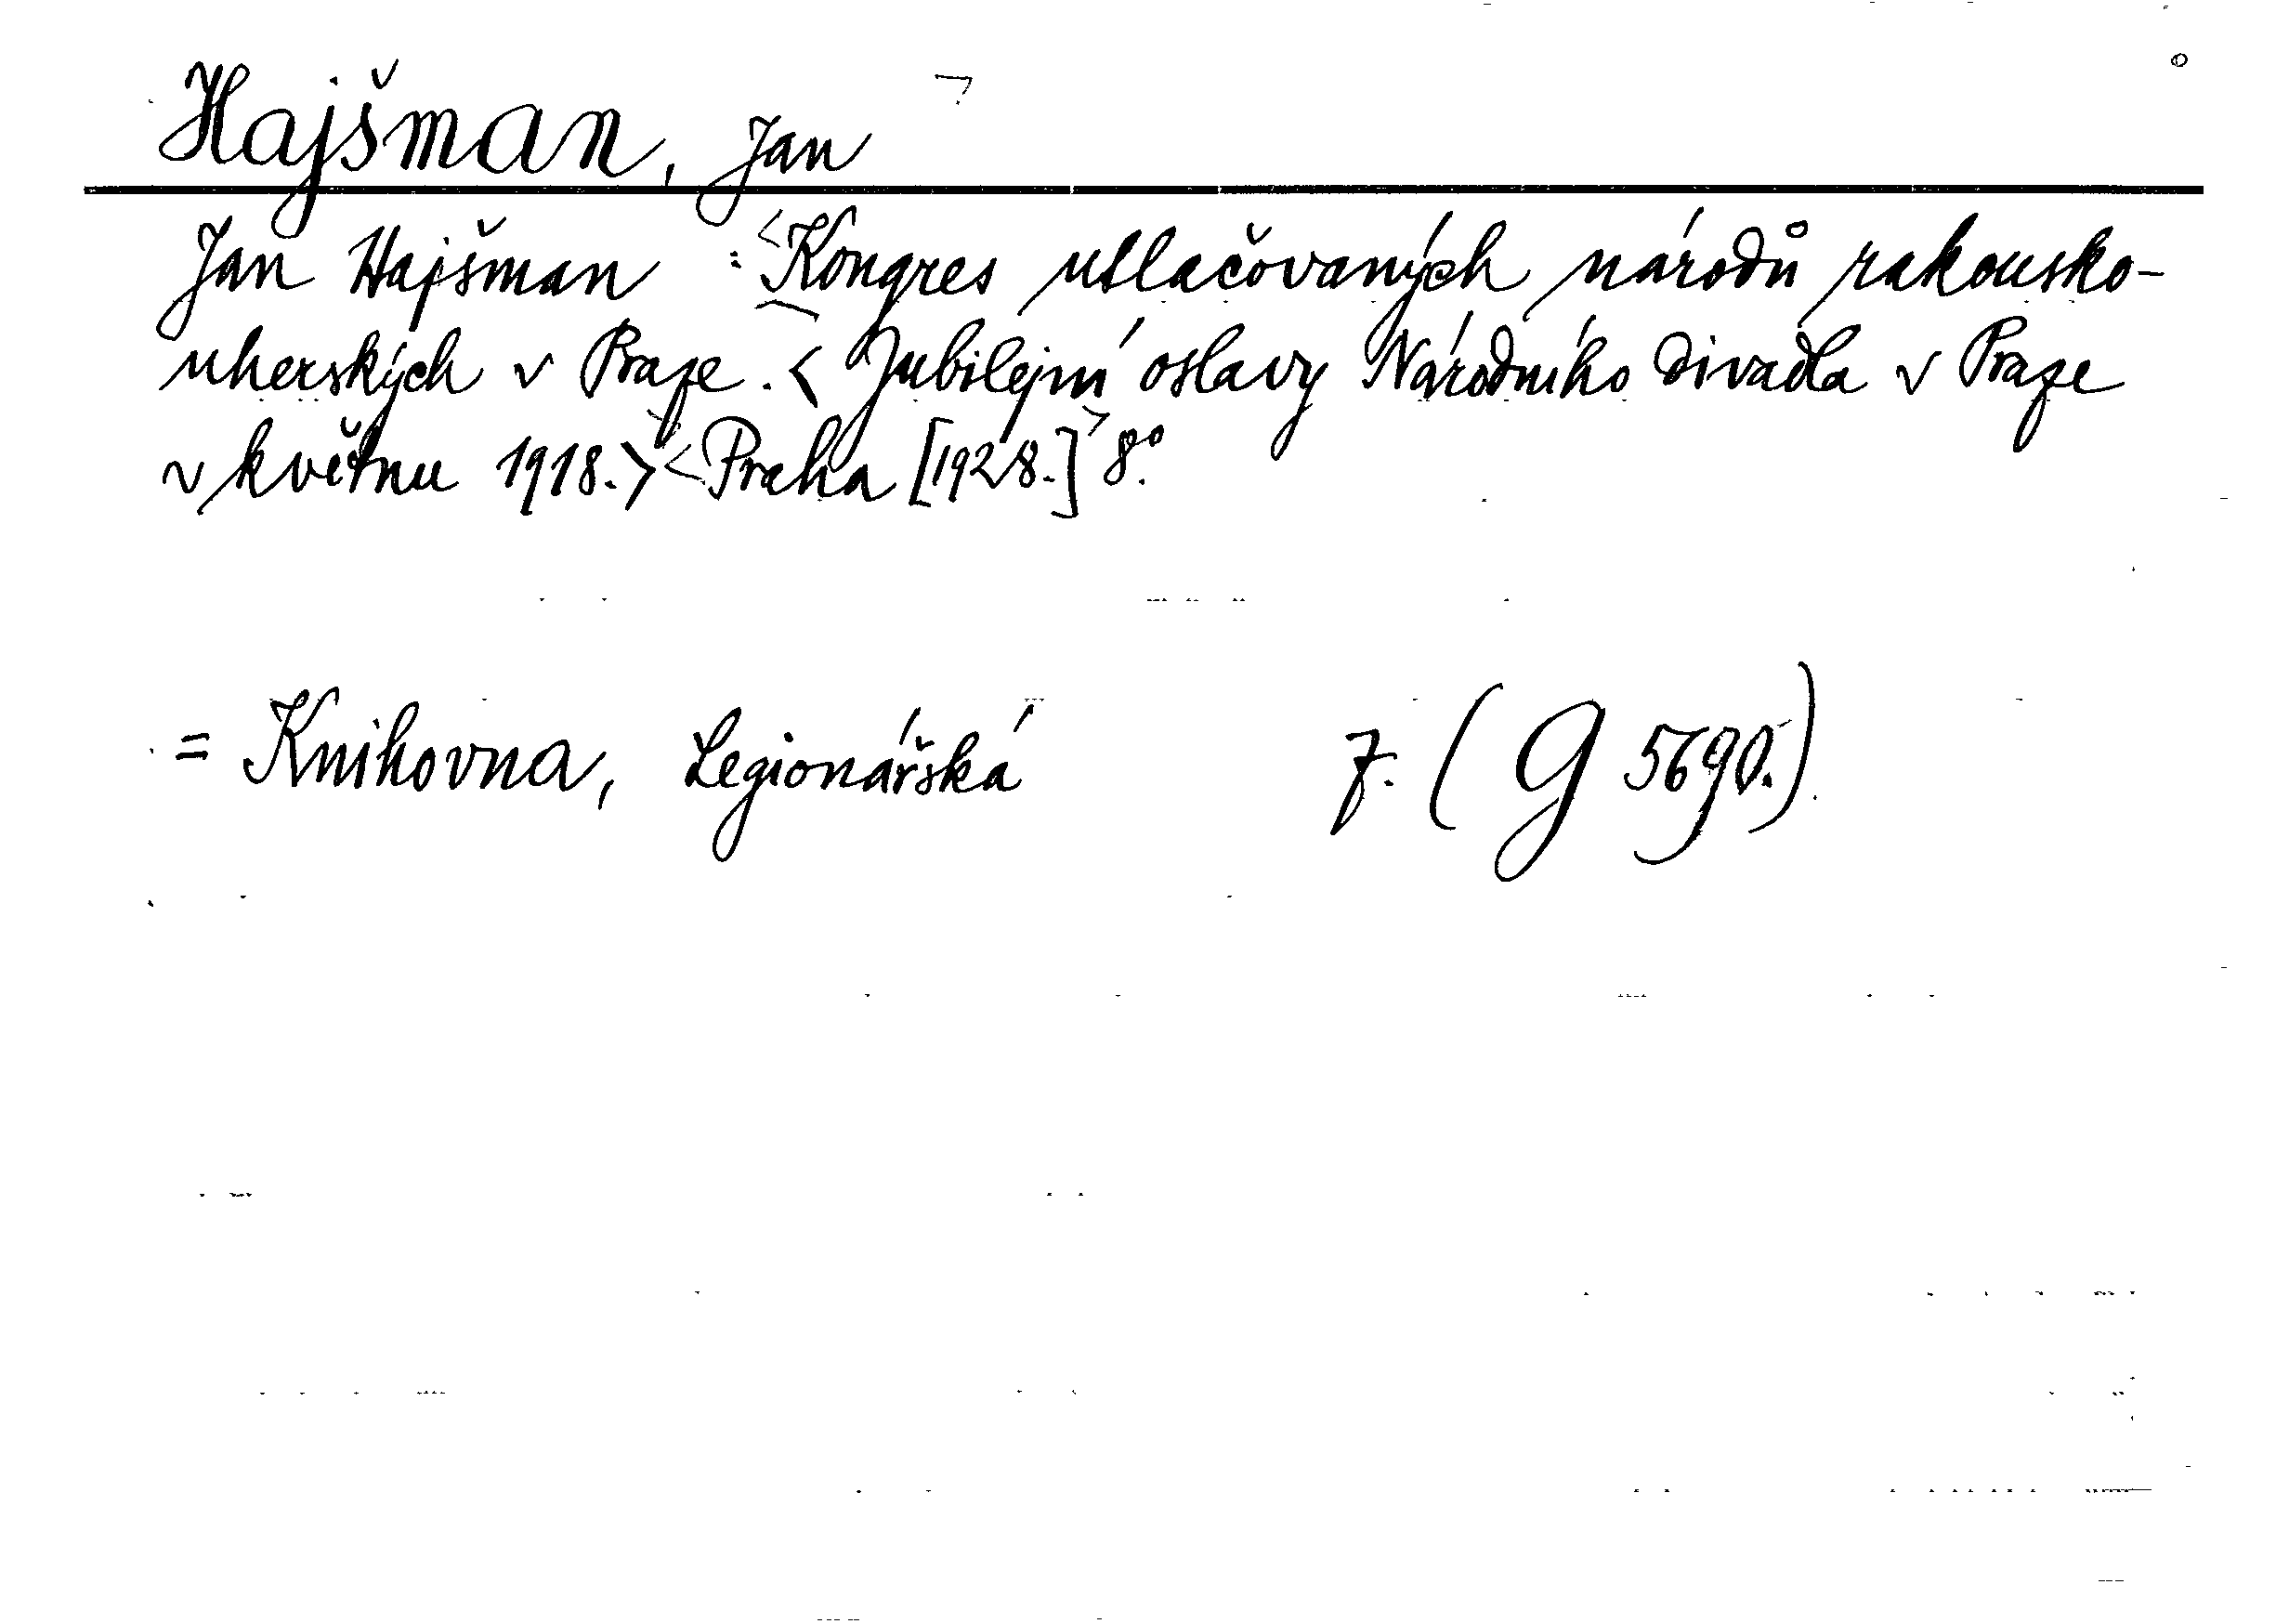 Hajšman, Jan
Jan Hajšman : <Kongres utlačovaných národů rakousko-
uherských v Praze. <Jubilejní oslavy Národního divadla v Praze
v květnu 1918.> <Praha [1928.]> 8°.
= Knihovna, Legionářská 7. (G 5690.)